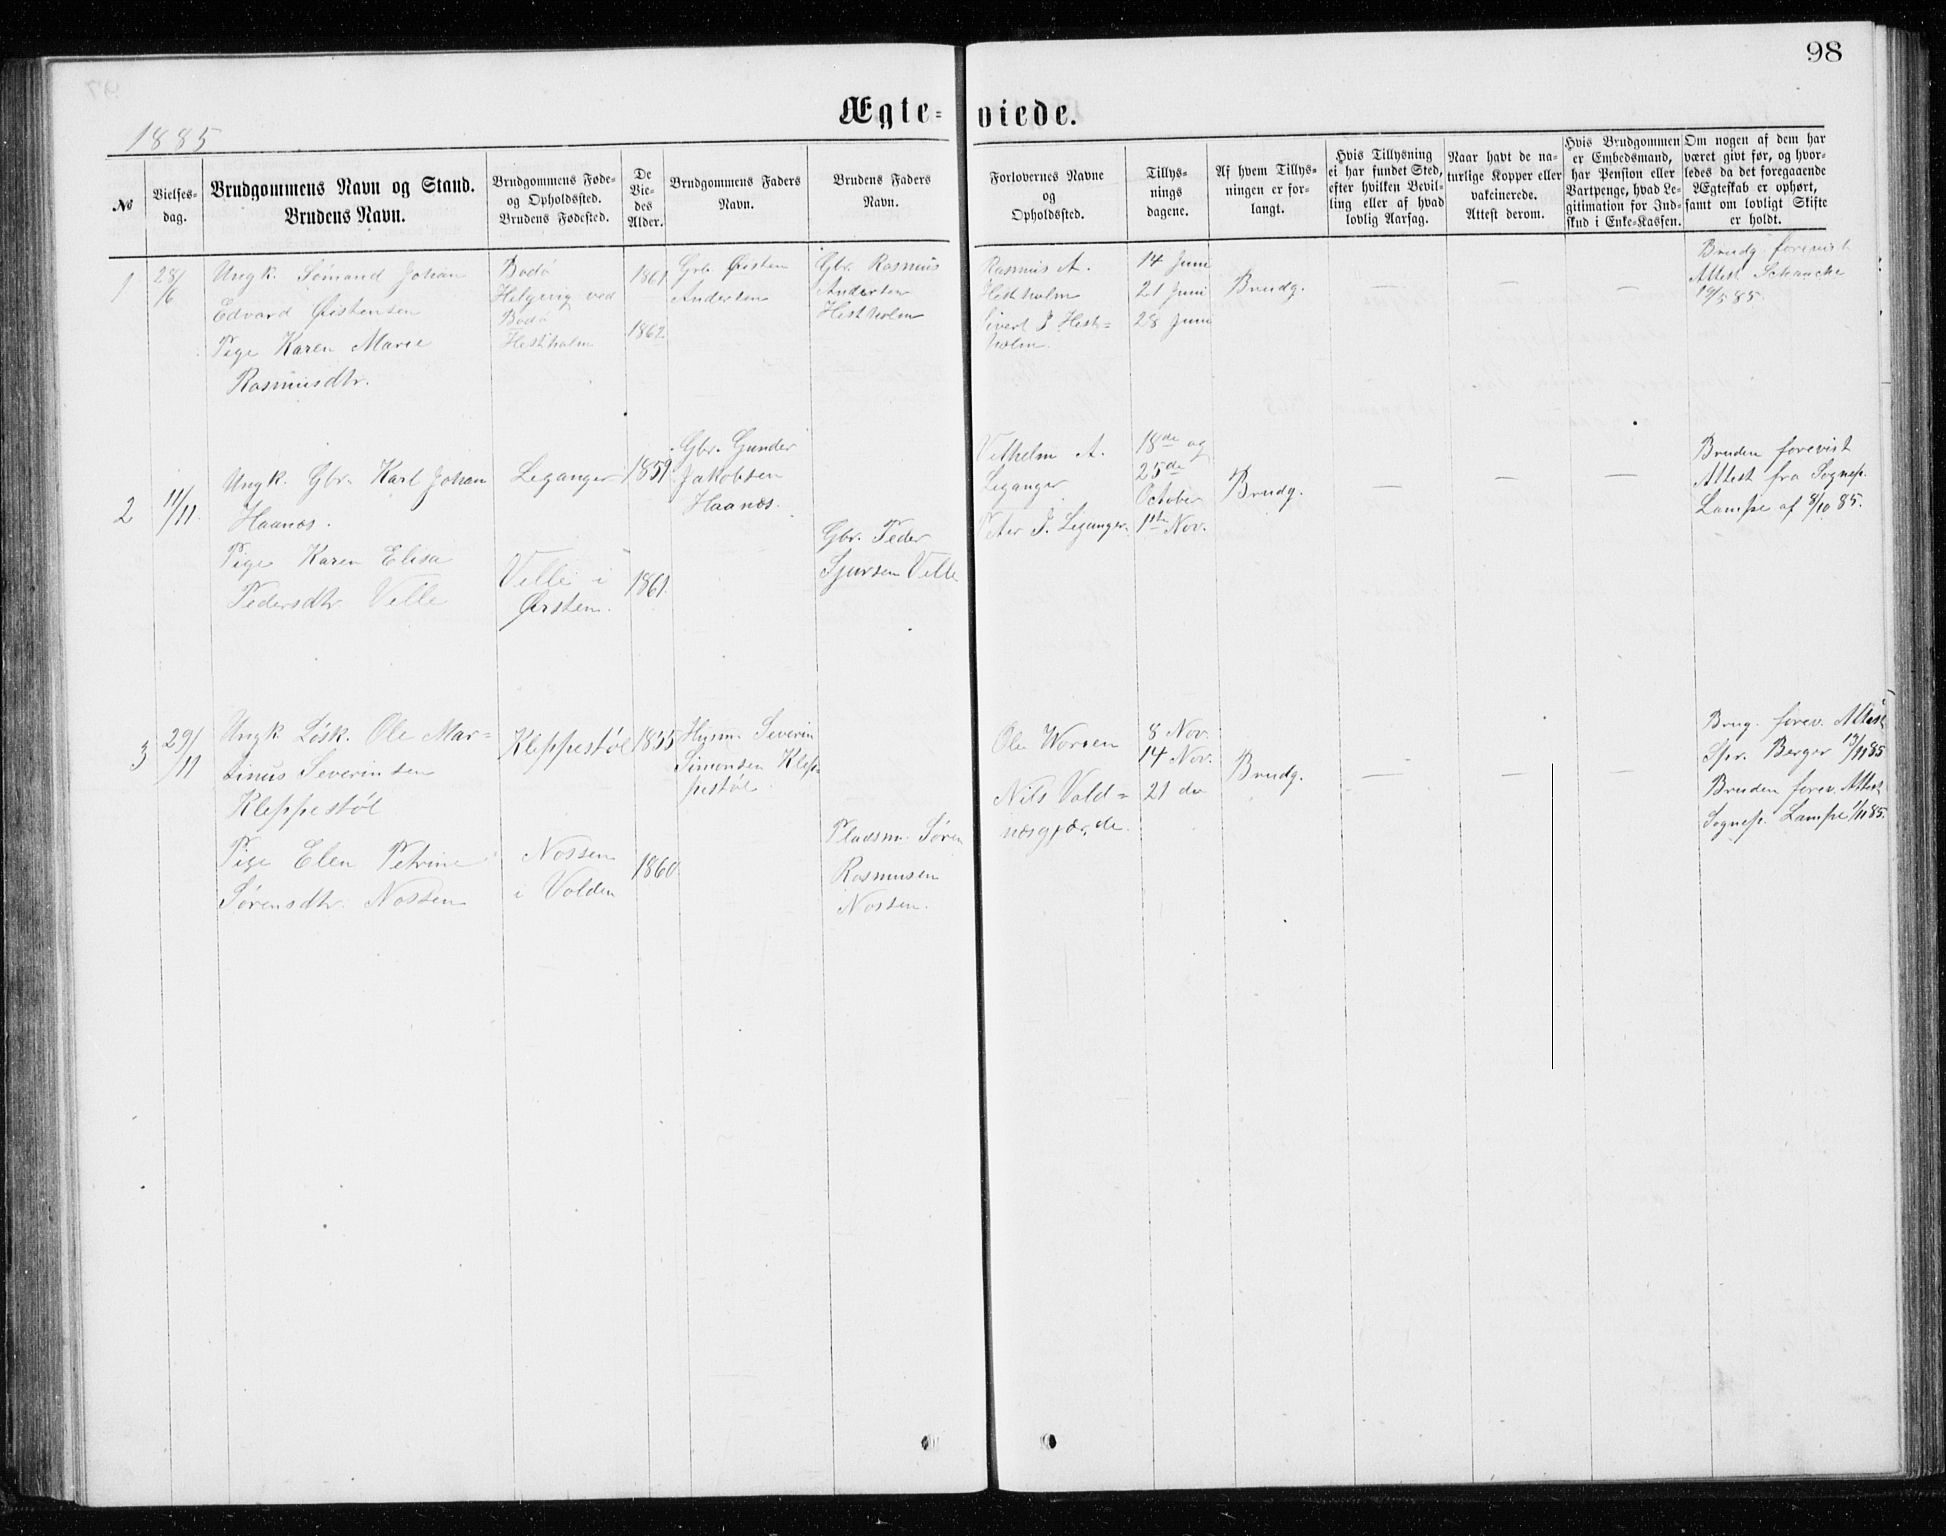 98
Ægte- viede.
1885
No
Vielses-
dag.
Brudgommens Navn og Stand.
Brudens Navn.
Brudgommens Føde-
og Opholdssted.
Brudens Fødested.
De
Vie-
des
Alder.
Brudgommens Faders
Navn.
Brudens Faders
Navn.
Forlovernes Navne
og
Opholdssted.
Tillys-
nings
dagene.
Af hvem Tillys-
ningen er for-
langt.
Hvis Tillysning
ei har fundet Sted,
efter hvilken Bevil-
ling eller af hvad
lovlig Aarsag.
Naar havt de na-
turlige Kopper eller
vakcinerede.
Attest derom.
Hvis Brudgommen
er Embedsmand,
har Pension eller
Vartpenge, hvad Le-
gitimation for Ind-
skud i Enke-Kassen.
Om nogen af dem har
været givt før, og hvor-
ledes da det foregaaende
Ægteskab er ophørt,
samt om lovligt Skifte
er holdt.
1
28/6
Ungk. Sømand Johan
Edvard Øistensen
Pige Karen Marie
Rasmusdtr.
Bodø
ved
Bodø
Hestholm
1861
1862
Gbr. Øisten
Andersen
Gbr. Rasmus
Andersen
Hestholm
Rasmus A.
Hestholm
Sivert J. Hest-
holm.
14 Juni
21 Juni
28 Juni
Brudg.
—
—
—
Brudg. forevist
Attest Schancke
19/5 85.
2
11/11.
Ungk. Gbr. Karl Johan
Haanæs.
Pige Karen Elisa
Pedersdtr. Velle
Leganger
Velle i
Ørsten.
1859
1861.
Gbr. Gunder
Jakobsen
Haanæs.
Gbr. Peder
Sjursen Velle
Vilhelm A.
Leganger
Peter J. Leganger.
18de og
25de
October
1ste Nov.
Brudg.
—
—
—
Bruden forevist
Attest fra Sognep.
Lampe af 8/10 85.
3
29/11
Ungk. Løsk. Ole Mar-
tinus Severinsen
Kleppestøl
Pige Elen Petrine
Sørensdtr. Nossen
Kleppestøl
Nossen
i Volden
1855
1860.
Husm. Severin
Simonsen Klep-
pestøl.
Pladsm. Søren
Rasmusen
Nossen.
Ole Worsen
Nils Vold-
næsgjærde.
8 Nov.
14 Nov.
21 do
Brudg.
—
—
—
Brug. forev. Attest
Spr. Berger 13/11 85
Bruden forev. Attest
Sognep. Lampe /11 85.